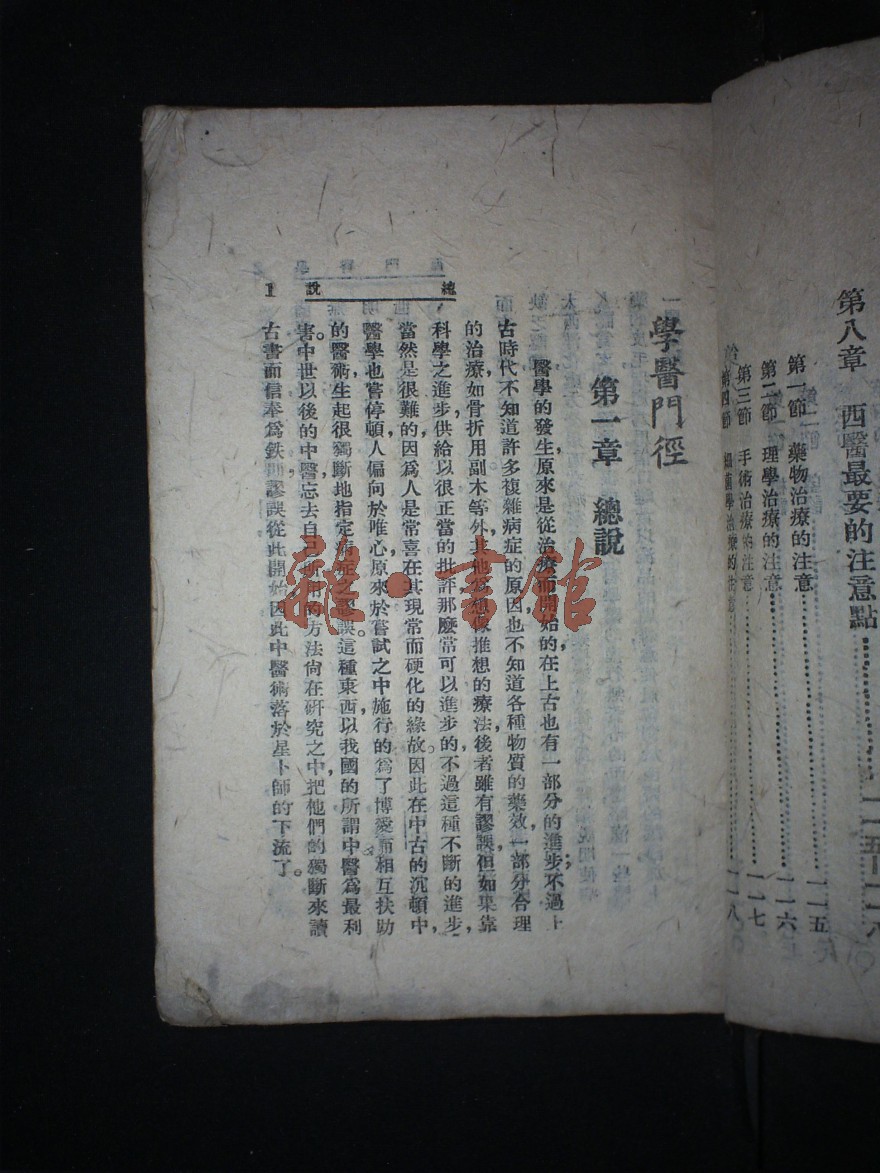 第八章　西醫最要的注意點……一一五—一一八
第一節　藥物治療的注意……一一五
第二節　理學治療的注意……一一六
第三節　手術治療的注意……一一七
第四節　細菌學治療的注意……一一八
學醫門徑
第一章　總說
醫學的發生，原來是從治療而開始的，在上古也有一部分的進步；不過上
古時代不知道許多複雜病症的原因，也不知道各種物質的藥效，一部分合理
的治療，如骨折用副木等，外其他爲想像推想的療法，後者雖有謬誤，但如果靠
科學之進步，供給以很正當的批評，那麽常可以進步的，不過這種不斷的進步，
當然是很難的，因爲人是常喜在其現常而硬化的緣故。因此在中古的沉頓中，
醫學也嘗停頓，人偏向於唯心，原來於嘗試之中施行的，爲了博愛而相互扶助
的醫術，生起很獨斷地指定病症之謬誤。這種東西，以我國的所謂中醫爲最利
害。中世以後的中醫，忘去自己所用的方法尙在研究之中，把他們的獨斷來讀
古書，而信奉爲鉄則，謬誤從此開始，因此中醫術落於星卜師的下流了。
總說
雜·書館